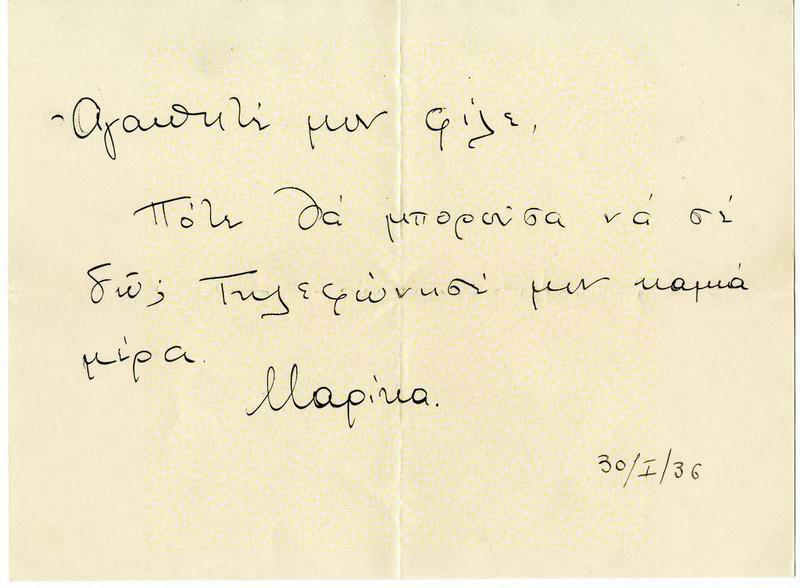 Ἀγαπητέ μου φίλε,
Πότε θά μποροῦσα νά σέ
δῶ; Τηλεφώνησέ μου καμιά
μέρα.
Μαρίκα.
30/I/36